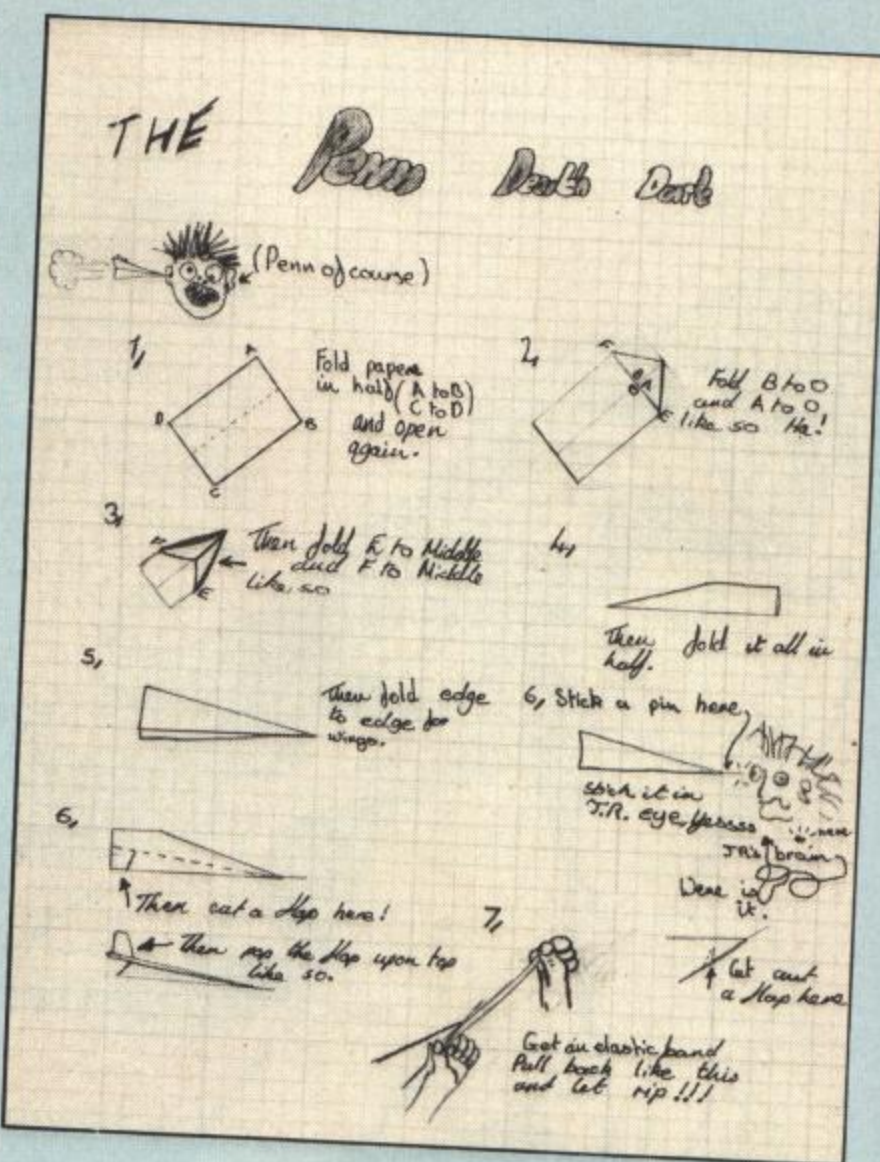 THE Penn Death Dart
(Penn of course)
1,
A
B
C
D
Fold paper
in half (A to B)
(C to D)
and open
again.
2,
F
B
A
E
Fold B to O
and A to O,
like so Ha!
3,
F
E
Then fold E to Middle
and F to Middle
like so
4,
Then fold it all in
half.
5,
Then fold edge
to edge for
wings.
6, Stick a pin here
stick it in
J.R. eye, Yessss
here
J.R's brain
Were is
it.
6,
Then cut a flap here!
Then pop the flap upon top
like so.
7,
Get an elastic band
Pull back like this
and let rip!!!
a flap here